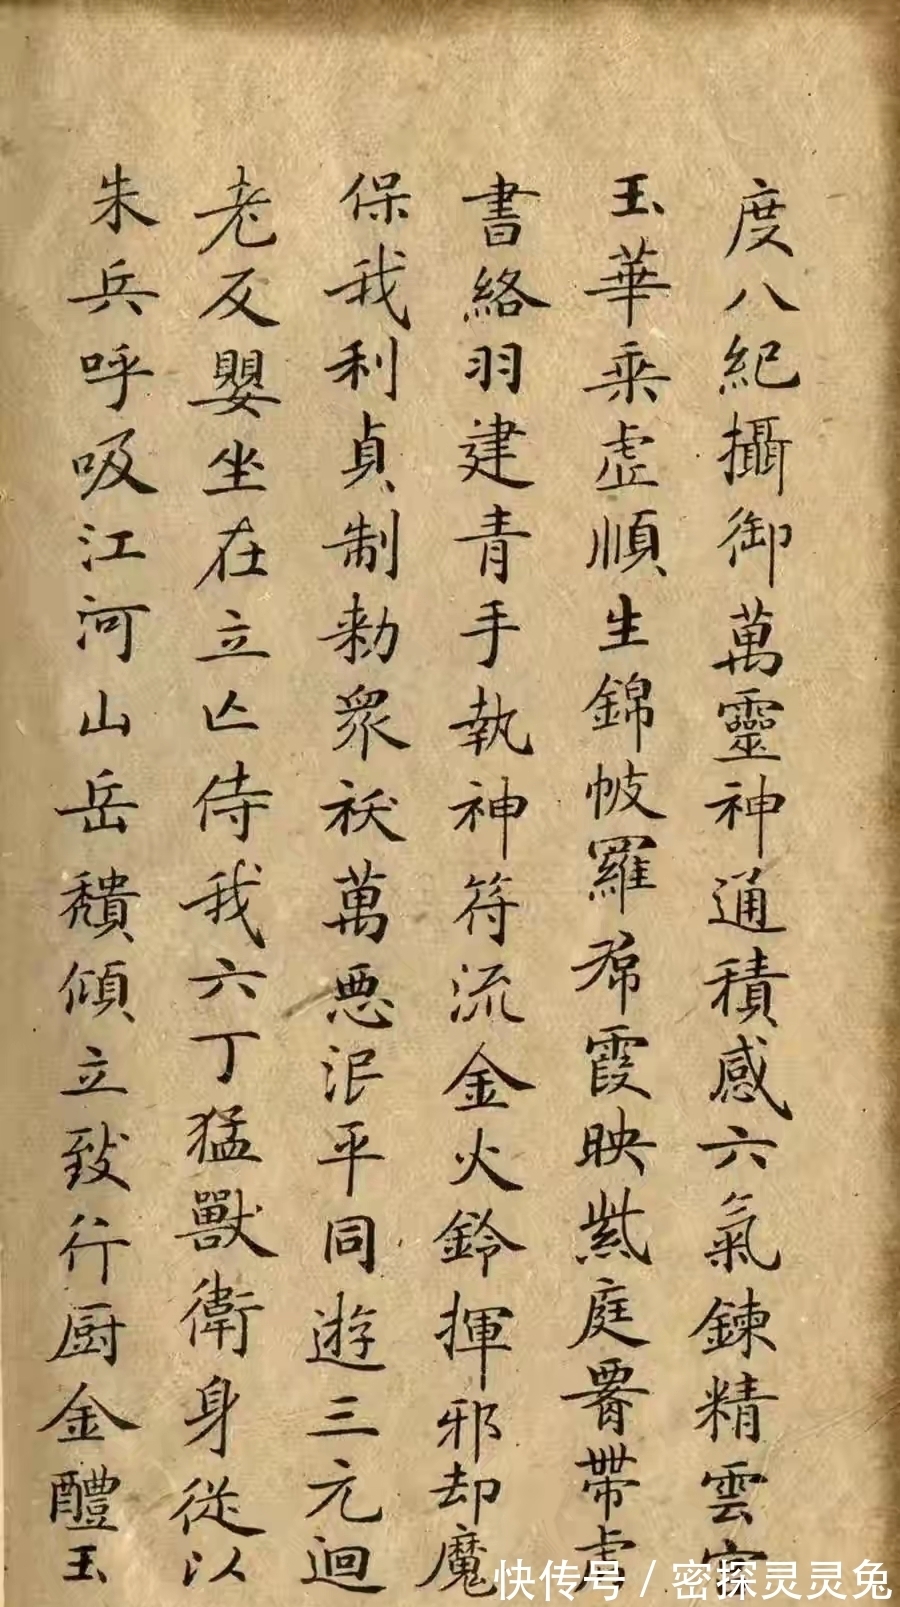 度八紀攝御萬靈神通積感六氣鍊精雲宮
玉華乘虛順生錦帔羅帬霞映紫庭腰帶虎
書絡羽建青手執神符流金火鈴揮邪却魔
保我利貞制勑衆祅萬惡泯平同遊三元迴
老反嬰坐在立亡侍我六丁猛獸衛身從以
朱兵呼吸江河山岳穨傾立致行厨金醴玉
快传号/密探灵灵兔